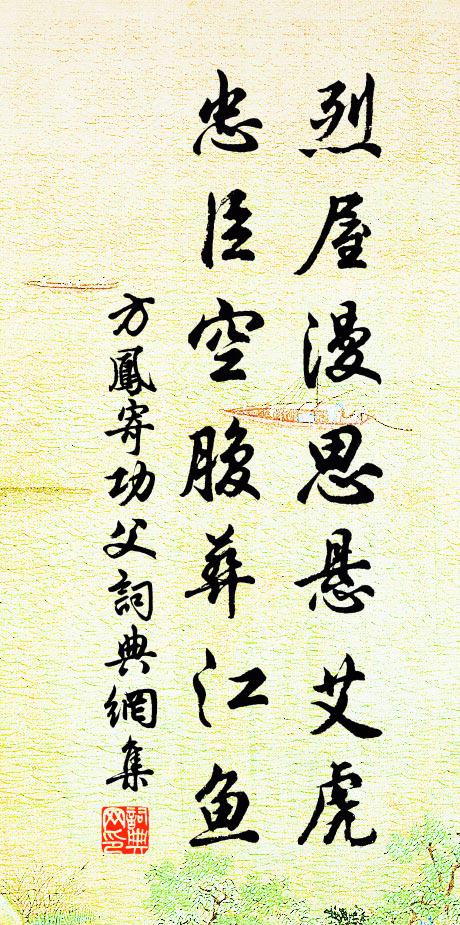 烈屋漫思悬艾虎
忠臣空腹葬江鱼
方鳳寄功父詞典網集
詞典网印